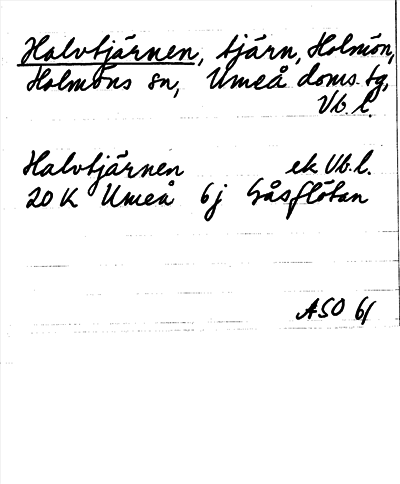 Halvtjärnen, tjärn, Holmön,
Holmöns sn, Umeå doms. tg,
Vb. l.
Halvtjärnen ek Vb. l.
20 K Umeå 6j Gåsflötan
ASO 61